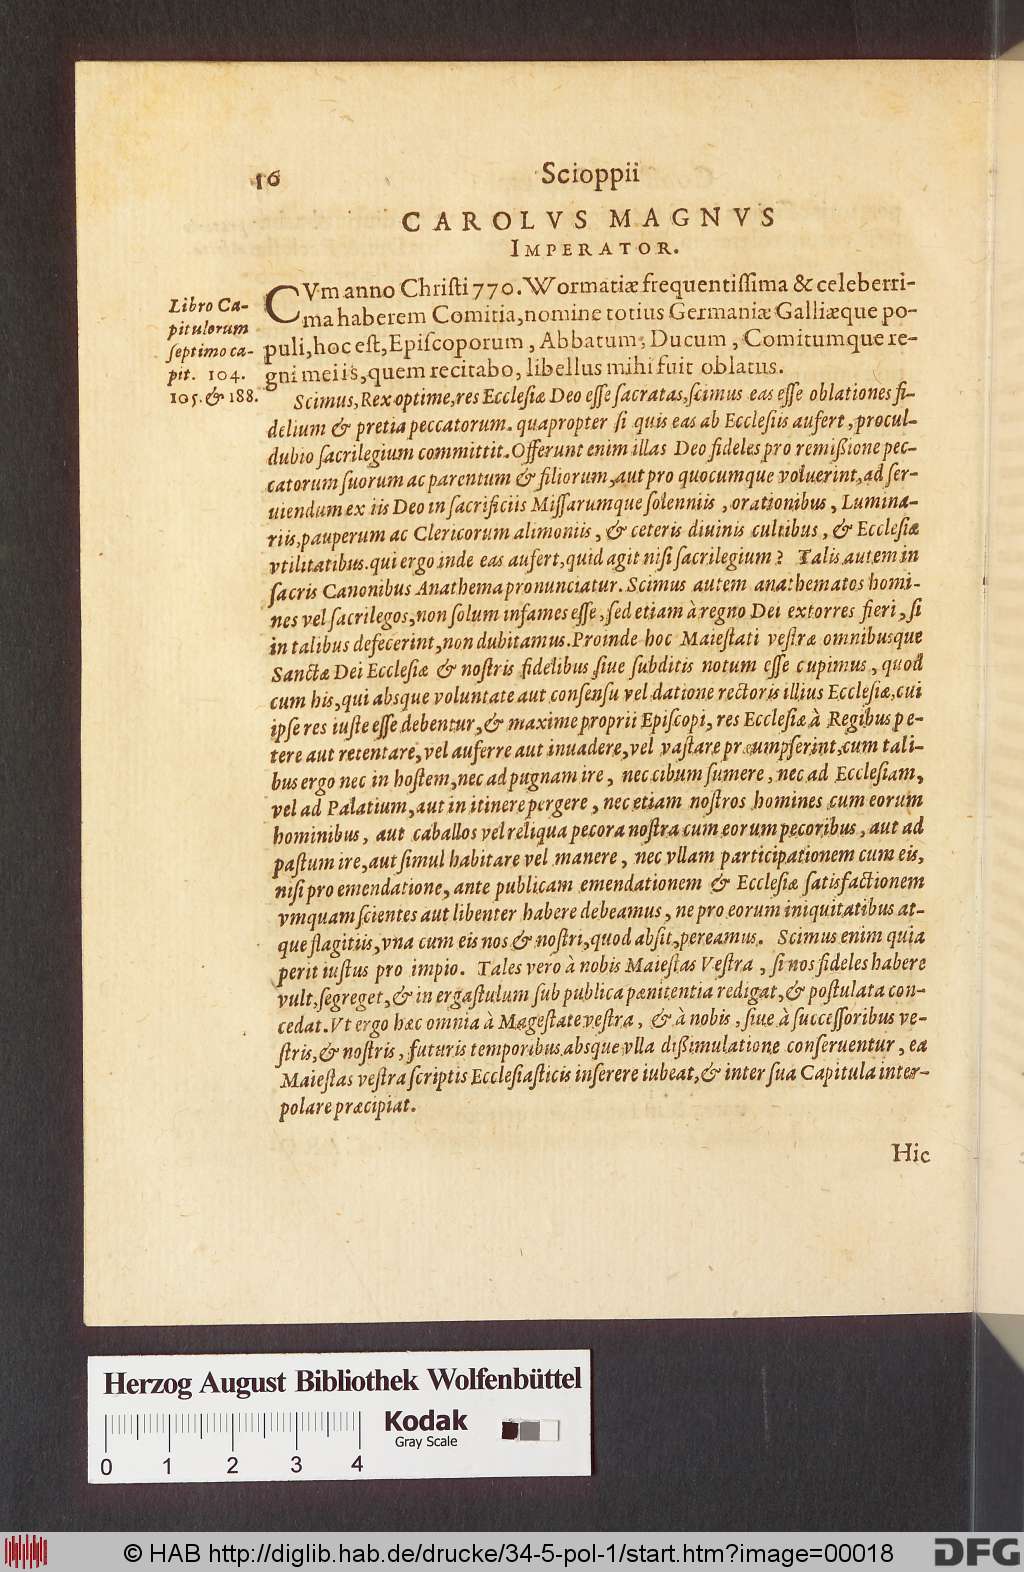 16 Scioppii
CAROLVS MAGNVS
IMPERATOR.
Libro Ca-
pitulorum
ſeptimo ca-
pit. 104.
105. & 188.
CVm anno Chriſti 770. Wormatiæ frequentiſſima & celeberri-
ma haberem Comitia, nomine totius Germaniæ Galliæque po-
puli, hoc eſt, Epiſcoporum, Abbatum, Ducum, Comitumque re-
gni mei is, quem recitabo, libellus mihi fuit oblatus.
Scimus, Rex optime, res Eccleſiæ Deo eſſe ſacratas, ſcimus eas eſſe oblationes fi-
delium & pretia peccatorum. quapropter ſi quis eas ab Eccleſiis aufert, procul-
dubio ſacrilegium committit. Offerunt enim illas Deo fideles pro remißione pec-
catorum ſuorum ac parentum & filiorum, aut pro quocumque voluerint, ad ſer-
uiendum ex iis Deo in ſacrificiis Miſſarumque ſolenniis, orationibus, Lumina-
riis, pauperum ac Clericorum alimoniis, & ceteris diuinis cultibus, & Eccleſiæ
vtilitatibus. qui ergo inde eas aufert, quid agit niſi ſacrilegium? Talis autem in
ſacris Canonibus Anathema pronunciatur. Scimus autem anathematos homi-
nes vel ſacrilegos, non ſolum infames eſſe, ſed etiam à regno Dei extorres fieri, ſi
in talibus defecerint, non dubitamus. Proinde hoc Maieſtati veſtræ omnibusque
Sanctæ Dei Eccleſiæ & noſtris fidelibus ſiue ſubditis notum eſſe cupimus, quod
cum his, qui absque voluntate aut conſenſu vel datione rectoris illius Eccleſiæ, cui
ipſe res iuſte eſſe debentur, & maxime proprii Epiſcopi, res Eccleſiæ à Regibus pe-
tere aut retentare, vel auferre aut inuadere, vel vaſtare præumpſerint, cum tali-
bus ergo nec in hoſtem, nec ad pugnam ire, nec cibum ſumere, nec ad Eccleſiam,
vel ad Palatium, aut in itinere pergere, nec etiam noſtros homines cum eorum
hominibus, aut caballos vel reliqua pecora noſtra cum eorum pecoribus, aut ad
paſtum ire, aut ſimul habitare vel manere, nec vllam participationem cum eis,
niſi pro emendatione, ante publicam emendationem & Eccleſiæ ſatisfactionem
vmquam ſcientes aut libenter habere debeamus, ne pro eorum iniquitatibus at-
que flagitiis, vna cum eis nos & noſtri, quod abſit, pereamus. Scimus enim quia
perit iuſtus pro impio. Tales vero à nobis Maieſtas Veſtra, ſi nos fideles habere
vult, ſegreget, & in ergaſtulum ſub publica pœnitentia redigat, & poſtulata con-
cedat. Vt ergo hæc omnia à Mageſtate veſtra, & à nobis, ſiue à ſucceſſoribus ve-
ſtris, & noſtris, futuris temporibus absque vlla dißimulatione conſeruentur, ea
Maieſtas veſtra ſcriptis Eccleſiaſticis inſerere iubeat, & inter ſua Capitula inter-
polare præcipiat.
Hic
Herzog August Bibliothek Wolfenbüttel
Kodak
Gray Scale
0 1 2 3 4
© HAB http://diglib.hab.de/drucke/34-5-pol-1/start.htm?image=00018
DFG